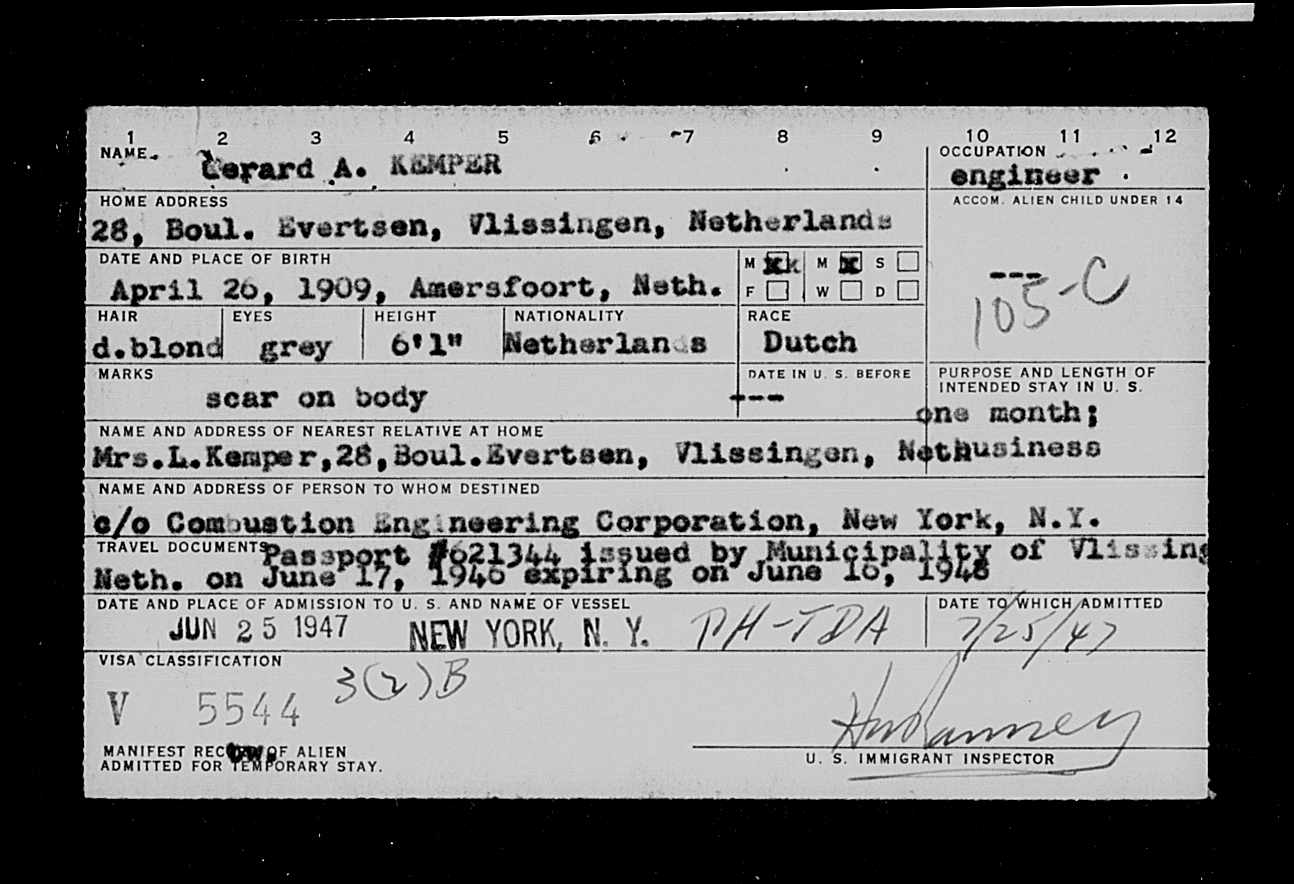 1 2 3 4 5 6 7 8 9 10 11 12
NAME. Gerard A. KEMPER
OCCUPATION
engineer
HOME ADDRESS
28, Boul. Evertsen, Vlissingen, Netherlands
ACCOM. ALIEN CHILD UNDER 14
---
105-C
DATE AND PLACE OF BIRTH
April 26, 1909, Amersfoort, Neth.
M M S
F W D
HAIR EYES HEIGHT NATIONALITY RACE
d.blond grey 6'1" Netherlands Dutch
MARKS
scar on body
DATE IN U. S. BEFORE
---
PURPOSE AND LENGTH OF
INTENDED STAY IN U. S.
one month;
business
NAME AND ADDRESS OF NEAREST RELATIVE AT HOME
Mrs.L.Kemper,28,Boul.Evertsen, Vlissingen, Neth
NAME AND ADDRESS OF PERSON TO WHOM DESTINED
c/o Combustion Engineering Corporation, New York, N.Y.
TRAVEL DOCUMENTS Passport #621344 issued by Municipality of Vlissing
Neth. on June 17, 1946 expiring on June 16, 1948
DATE AND PLACE OF ADMISSION TO U. S. AND NAME OF VESSEL
JUN 25 1947 NEW YORK, N. Y. PH-TDA
DATE TO WHICH ADMITTED
7/25/47
VISA CLASSIFICATION
V 5544 3(2)B
MANIFEST RECORD OF ALIEN
ADMITTED FOR TEMPORARY STAY.
U. S. IMMIGRANT INSPECTOR